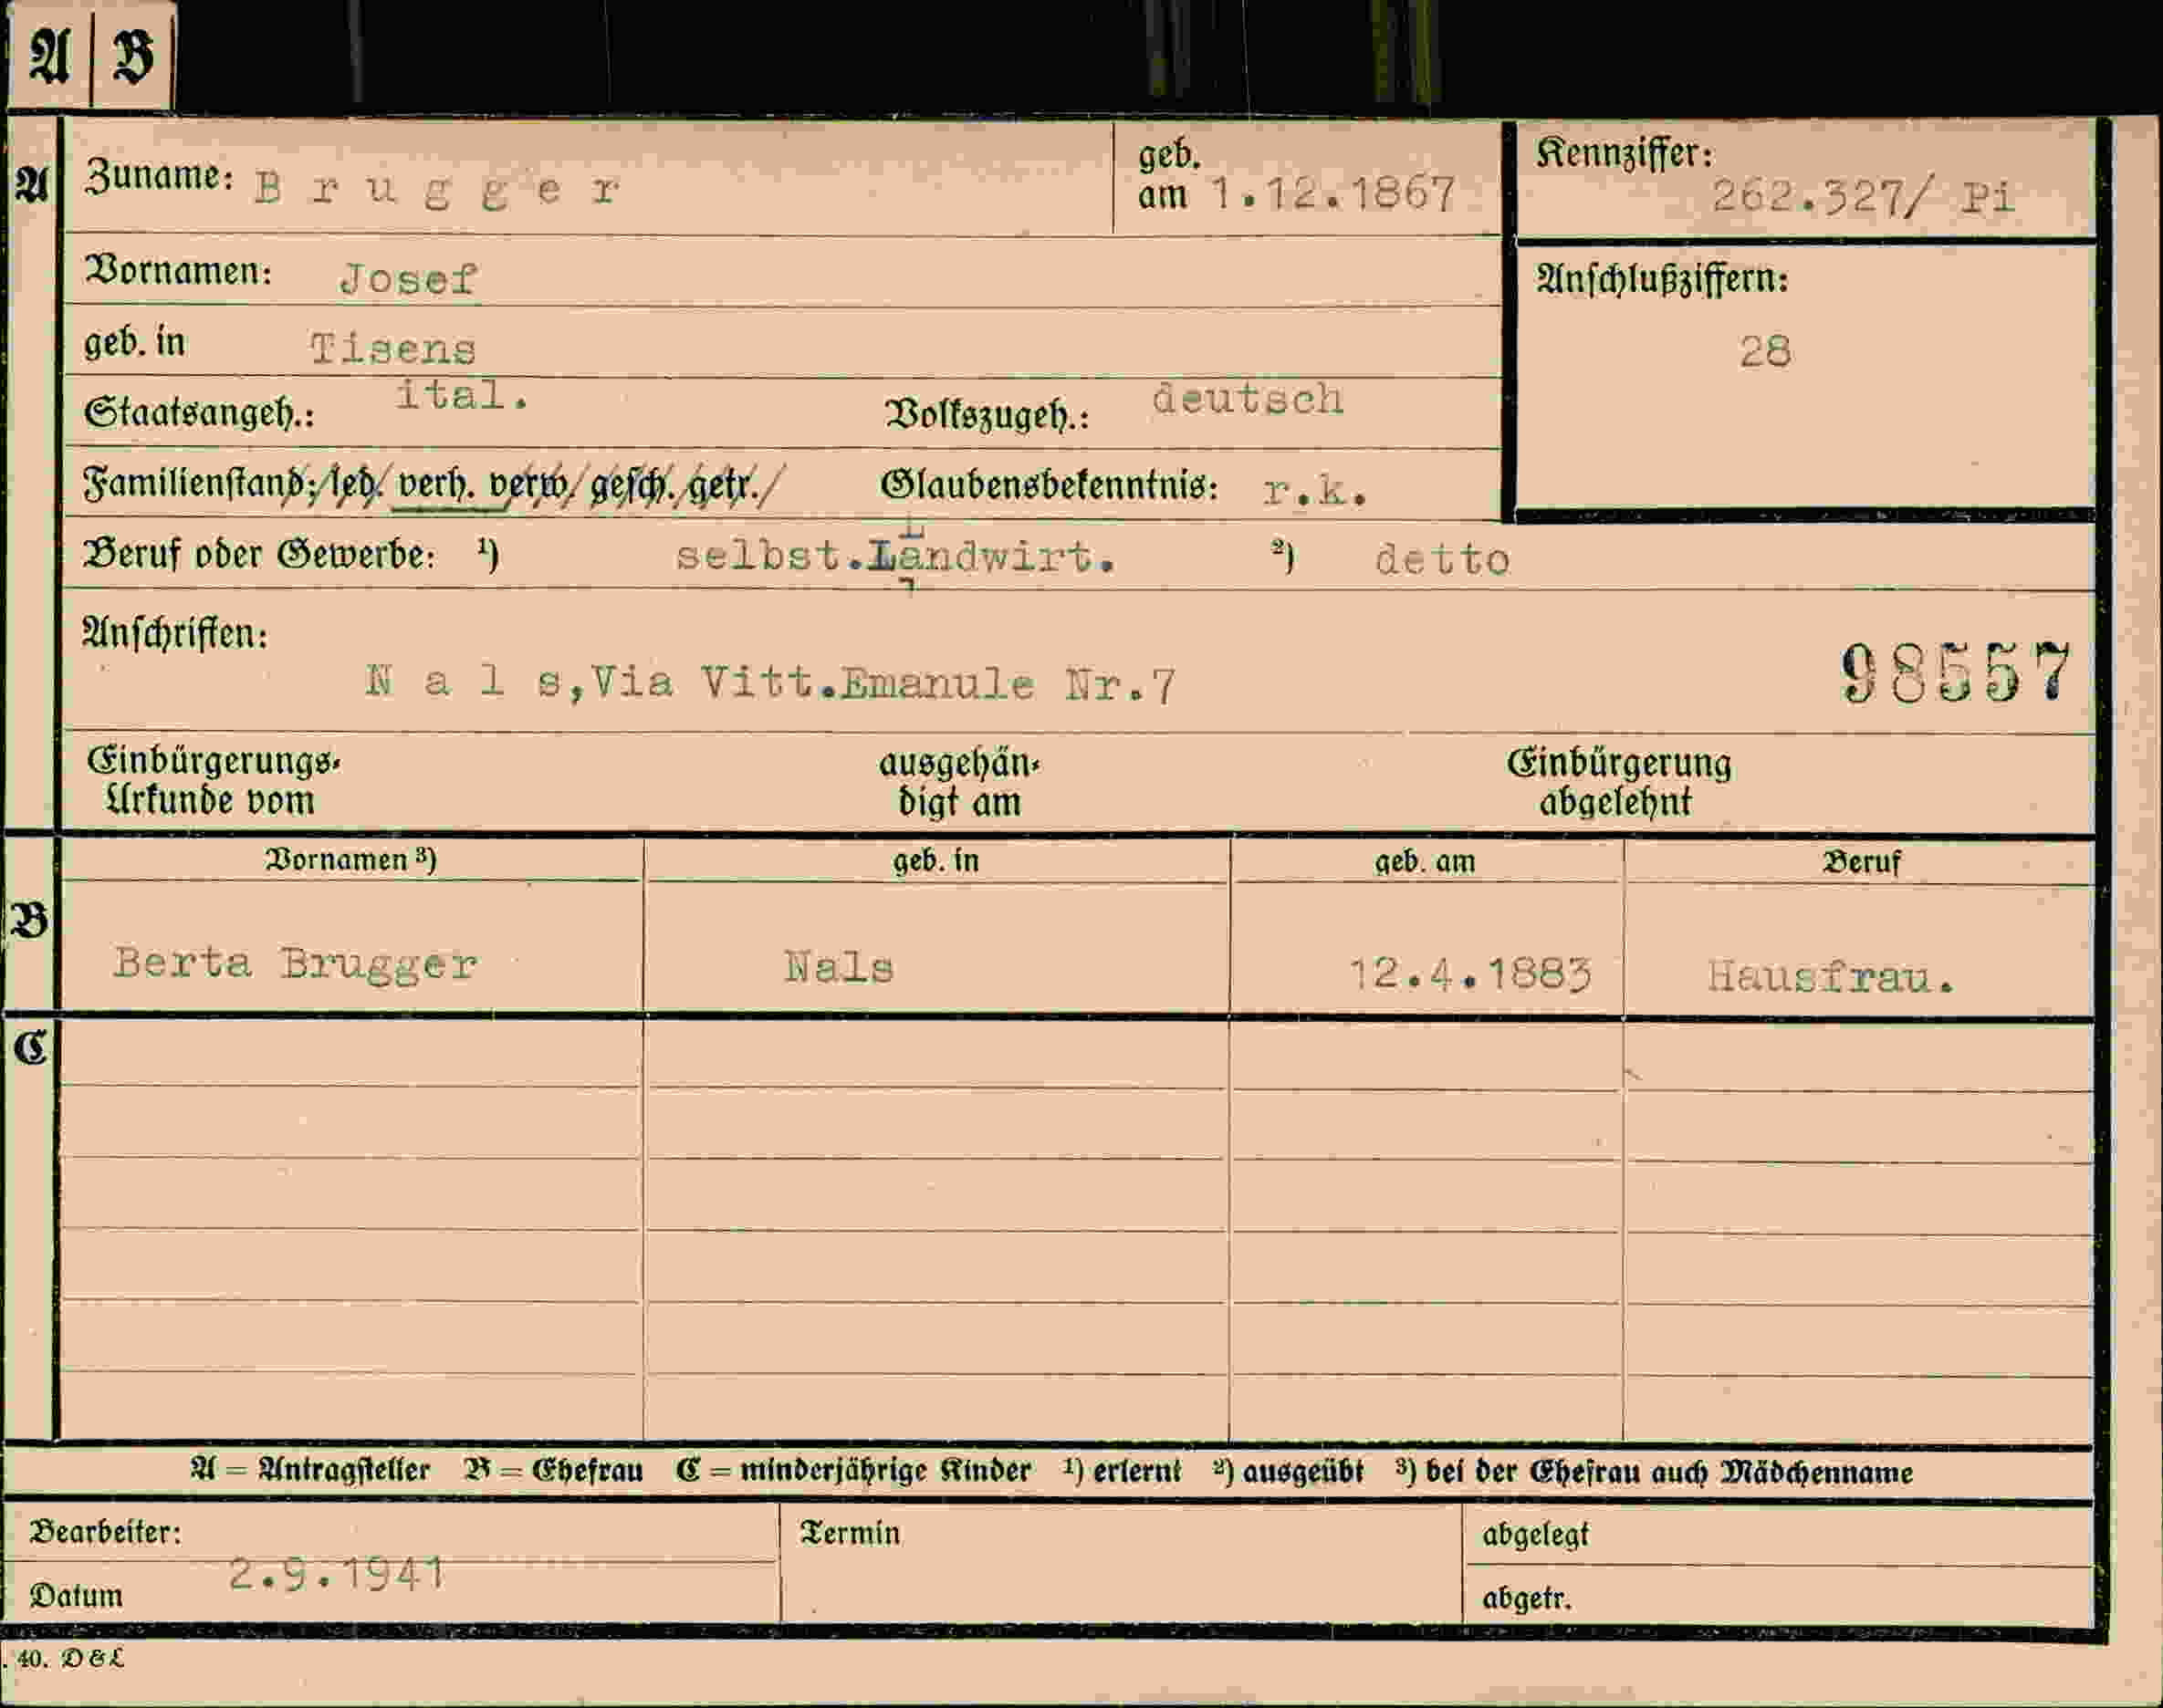 A B
A Zuname: Brugger geb. am 1.12.1867 Kennziffer: 262.327/ Pi
Vornamen: Josef Anschlußziffern:
geb. in Tisens 28
Staatsangeh.: ital. Volkszugeh.: deutsch
Familienstand: led. verh. verw. gesch. getr. Glaubensbekenntnis: r.k.
Beruf oder Gewerbe: ¹) selbst.Landwirt. ²) detto
Anschriften:
Nals,Via Vitt.Emanule Nr.7 98557
Einbürgerungs- ausgehän- Einbürgerung
Urkunde vom digt am abgelehnt
Vornamen ³) geb. in geb. am Beruf
B
Berta Brugger Nals 12.4.1883 Hausfrau.
C
A = Antragsteller B = Ehefrau C = minderjährige Kinder ¹) erlernt ²) ausgeübt ³) bei der Ehefrau auch Mädchenname
Bearbeiter: Termin abgelegt
2.9.1941
Datum abgetr.
. 40. D & L